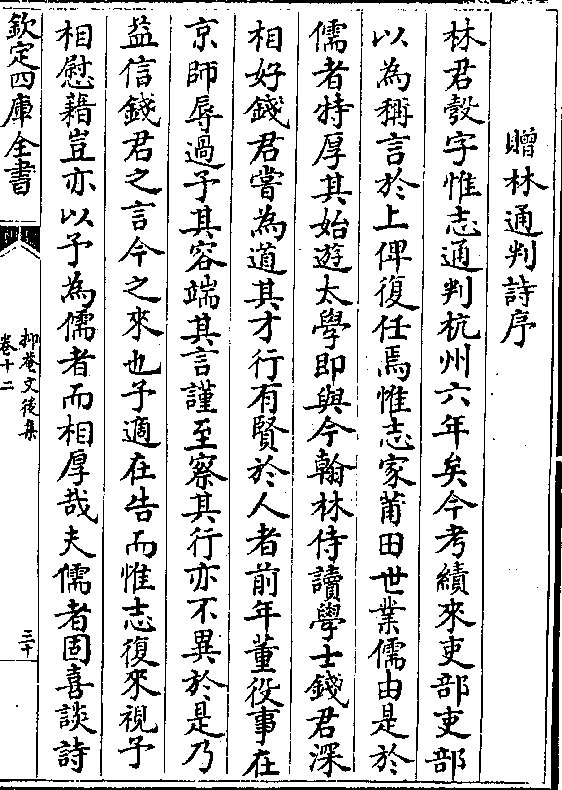 贈林通判詩序
林君彀字惟志通判杭州六年矣今考績來吏部吏部
以為稱言於上俾復任焉惟志家莆田世業儒由是於
儒者特厚其始遊太學即與今翰林侍讀學士錢君深
相好錢君嘗為道其才行有賢於人者前年董役事在
京師辱過予其容端其言謹至察其行亦不異於是乃
益信錢君之言今之來也予適在告而惟志復來視予
相慰藉豈亦以予為儒者而相厚哉夫儒者固喜談詩
欽定四庫全書
抑菴文後集
卷十二
三十